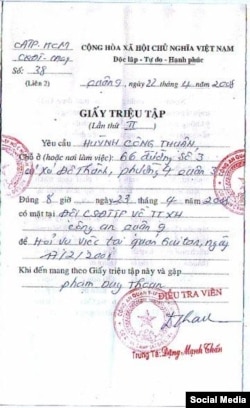 CATP. HCM
CỘNG HÒA XÃ HỘI CHỦ NGHĨA VIỆT NAM
Độc lập - Tự do - Hạnh phúc
Số: 38
(Liên 2)
quận 9, ngày 22 tháng 4 năm 2008
GIẤY TRIỆU TẬP
(Lần thứ II)
Yêu cầu HUỲNH CÔNG THUẬN,
Chỗ ở (hoặc nơi làm việc): 66 đường số 3
cư xá Đô Thành, phường 4 quận 3
Đúng 8 giờ ngày 23 tháng 4 năm 2008
có mặt tại ĐỘI CSĐTTP VỀ TTXH
công an quận 9
để Hỏi vụ việc tại quán Guitan, ngày
17/2/2008
Khi đến mang theo Giấy triệu tập này và gặp
phạm Duy Thoan
ĐIỀU TRA VIÊN
Trung Tá: Đặng Mạnh Chẩn
Social Media